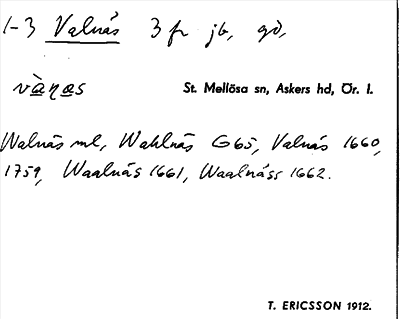 1-3 Valnäs 3 fr jb, gd,
vànas St. Mellösa sn, Askers hd, Ör. l.
Walnäs ml, Wahlnäs G65, Valnäs 1660,
1759, Waalnäs 1661, Waalnäss 1662.
T. ERICSSON 1912.